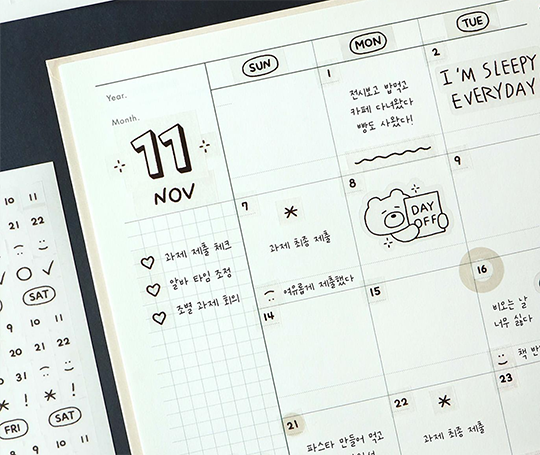 SUN
MON
TUE
Year.
Month.
11
NOV
1
전시보고 밥먹고
카페 다녀왔다
빵도 사왔다!
2
I'M SLEEPY
EVERYDAY
과제 제출 체크
알바 타임 조정
조별 과제 회의
7
*
과제 최종 제출
여유롭게 제출했다
8
DAY
OFF
9
14
15
16
비오는 날
너무 싫다
책 반
21
파스타 만들어 먹고
22
*
과제 최종 제출
23
10 11
21 22
SAT
9 10 11
20 21 22
30 31
* ! * !
FRI SAT
8 9 10 11